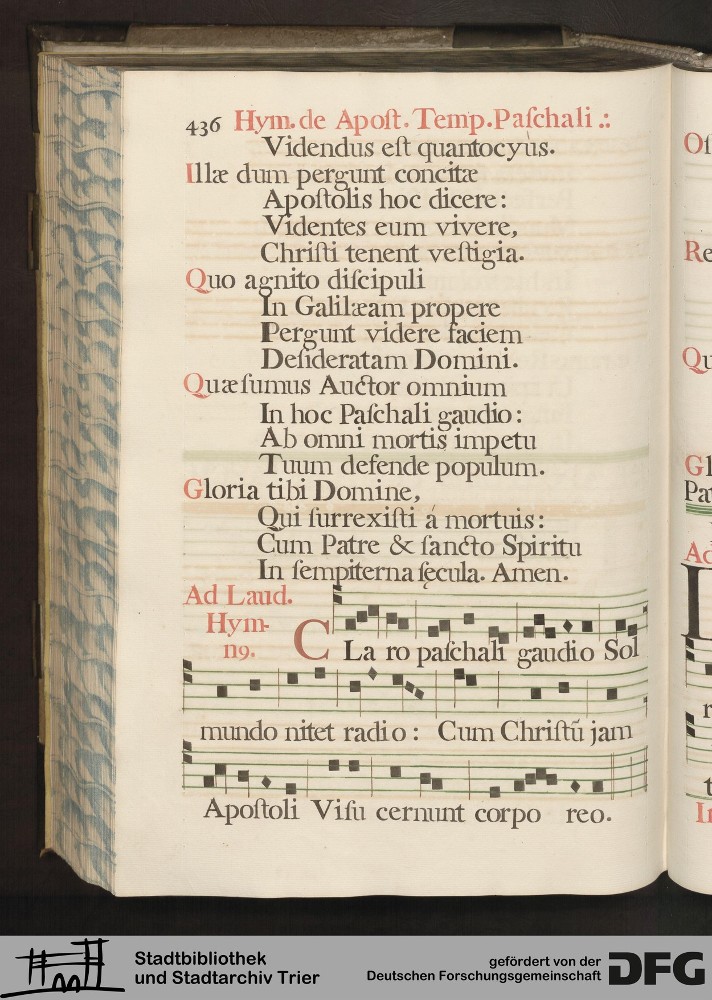 436 Hym. de Apoſt. Temp. Paſchali .:
Videndus eſt quantocyùs.
Illæ dum pergunt concitæ
Apoſtolis hoc dicere:
Videntes eum vivere,
Chriſti tenent veſtigia.
Quo agnito diſcipuli
In Galilæam propere
Pergunt videre faciem
Deſideratam Domini.
Quæſumus Auctor omnium
In hoc Paſchali gaudio:
Ab omni mortis impetu
Tuum defende populum.
Gloria tibi Domine,
Qui ſurrexiſti á mortuis:
Cum Patre & ſancto Spiritu
In ſempiterna ſęcula. Amen.
Ad Laud.
Hym-
n9.
CLa ro paſchali gaudio Sol
mundo nitet radio: Cum Chriſtũ jam
Apoſtoli Viſu cernunt corpo reo.
Oſ
Re
Qu
Gl
Pat
Ad
L
r
t
In
Stadtbibliothek
und Stadtarchiv Trier
gefördert von der
Deutschen Forschungsgemeinschaft
DFG